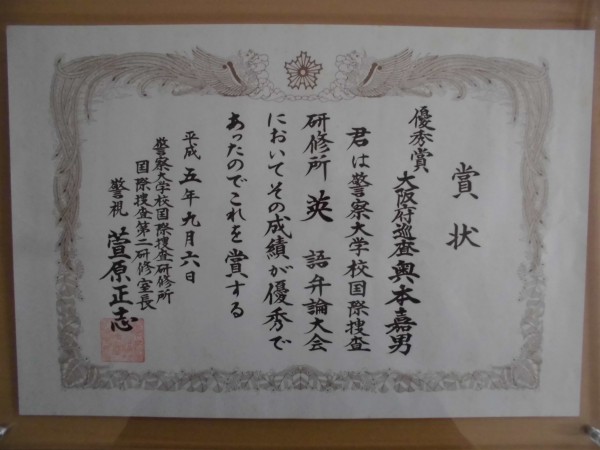 賞状
優秀賞
大阪府巡査 奥本嘉男
君は警察大学校国際捜査
研修所 英 語 弁論大会
においてその成績が優秀で
あったのでこれを賞する
平成五年九月六日
警察大学校国際捜査研修所
国際捜査第二研修室長
警視 萱原正志